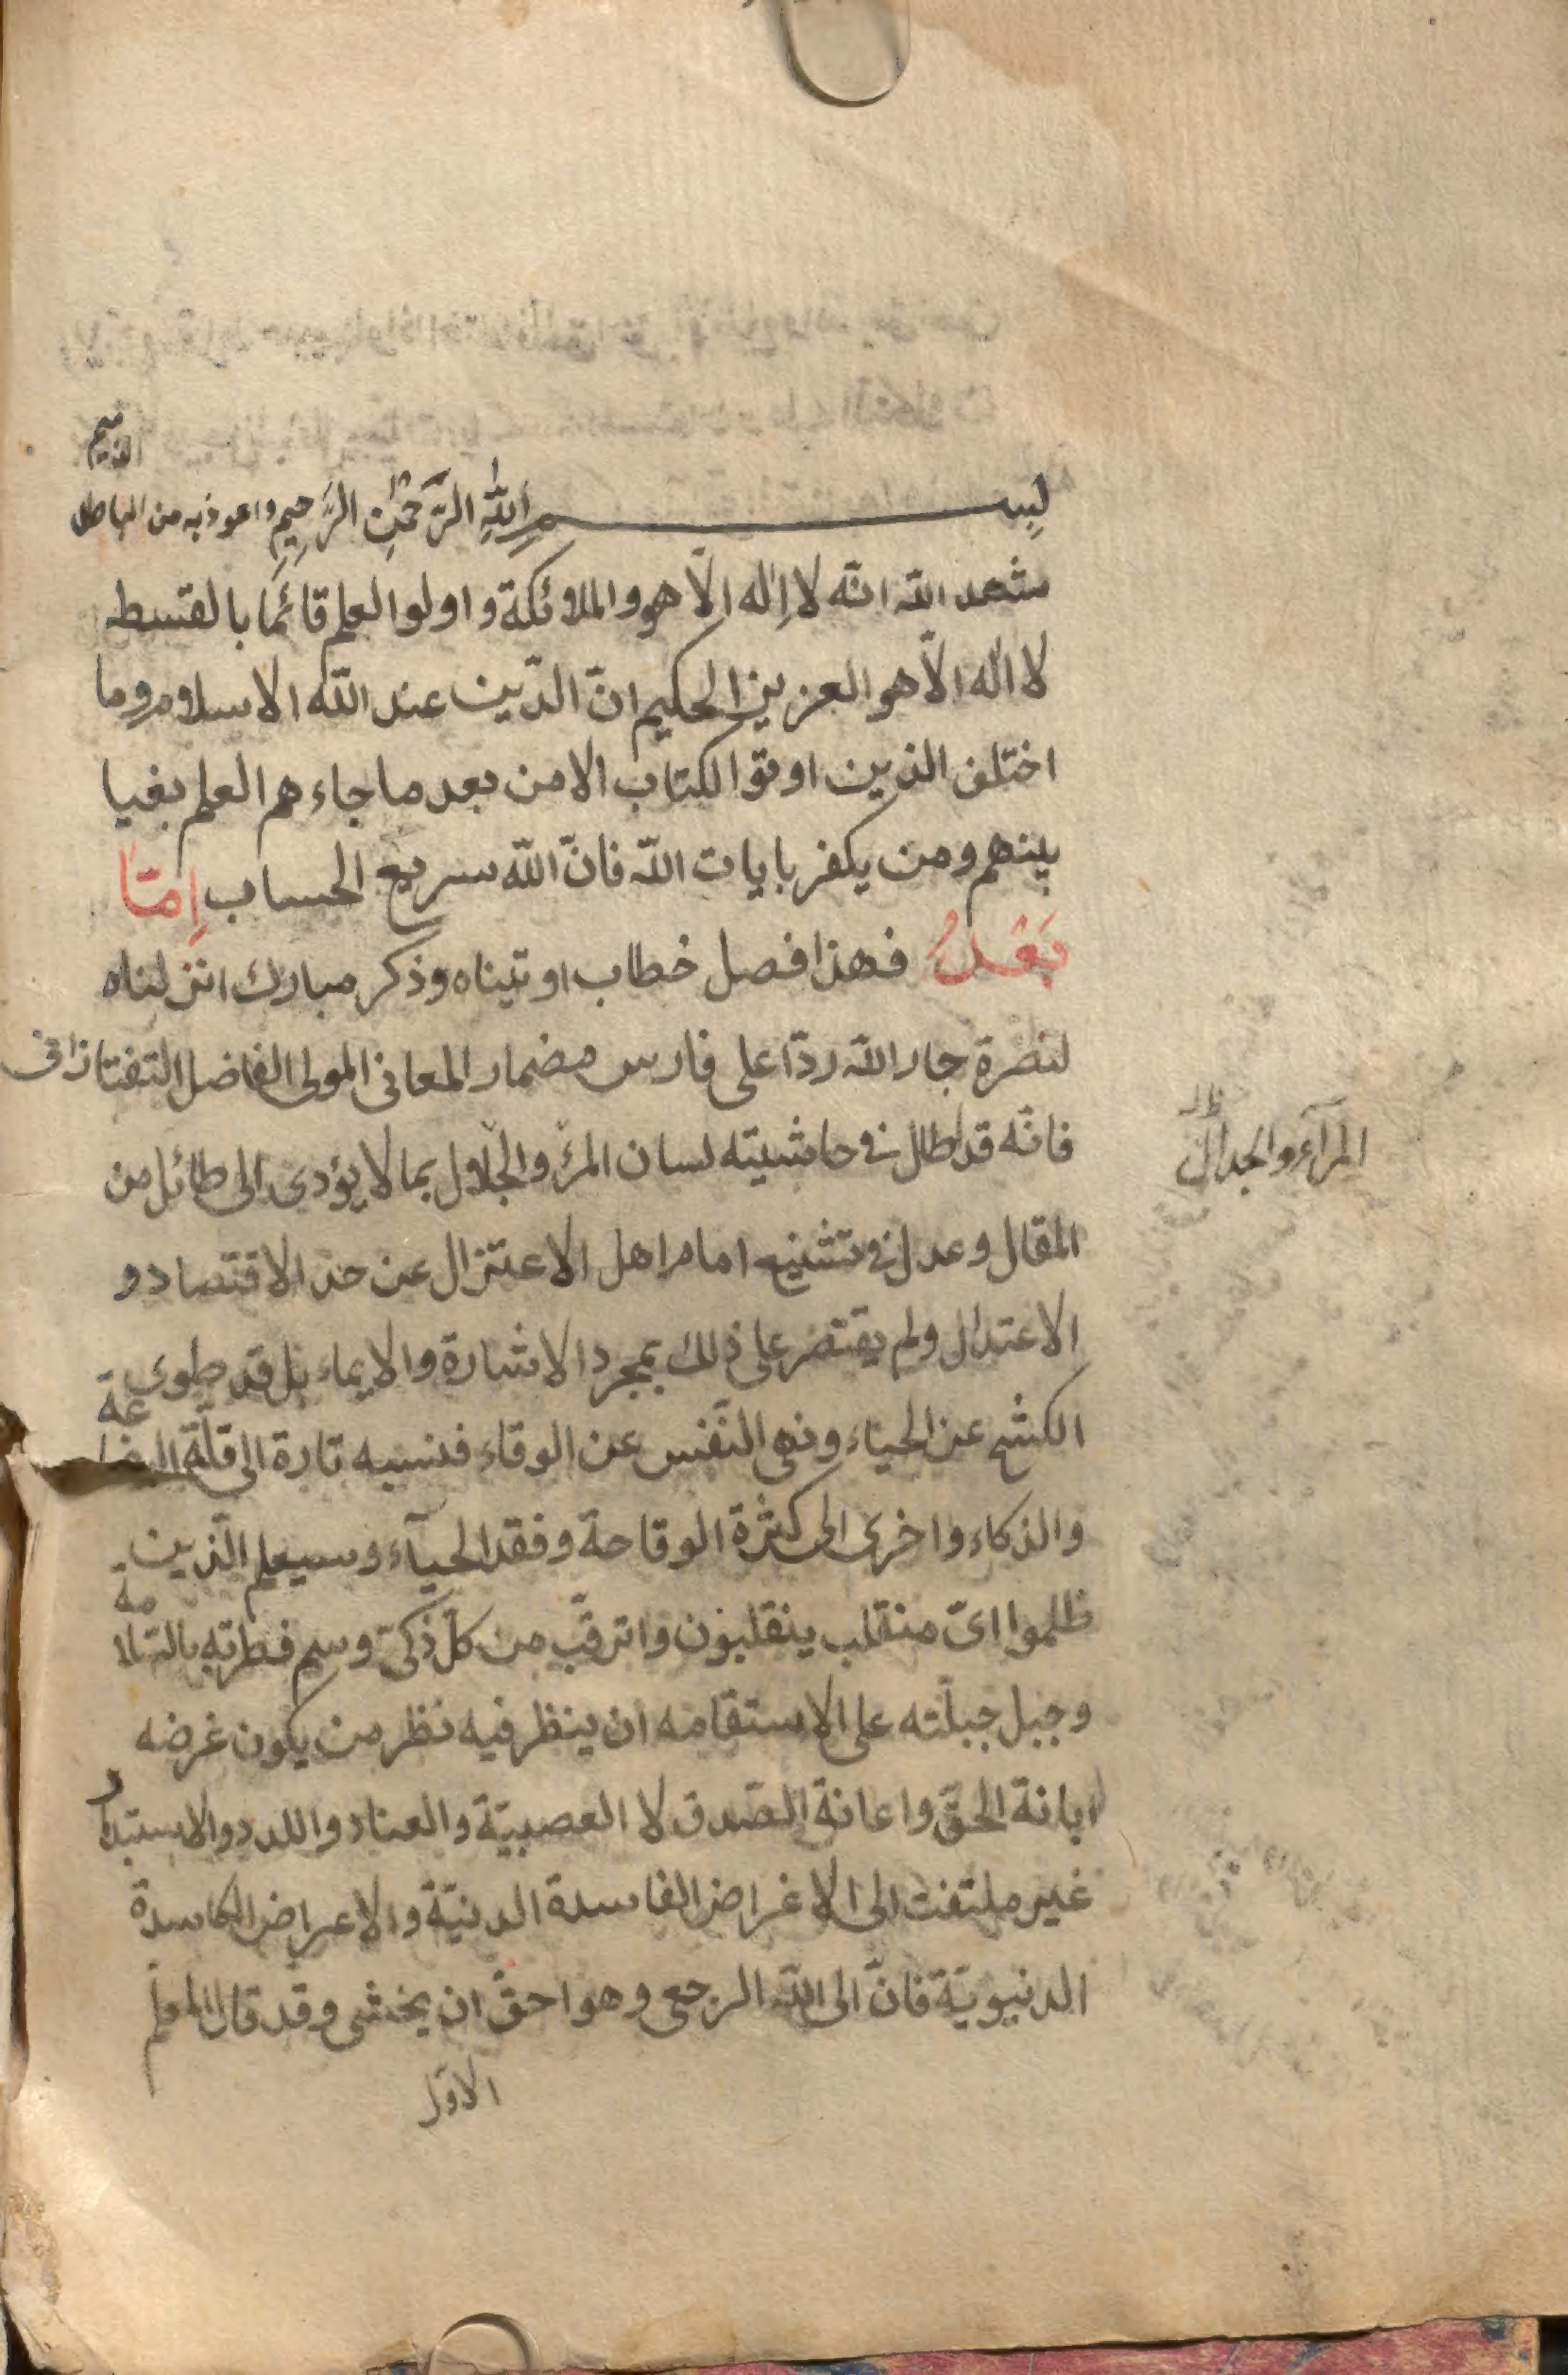 بسم الله الرحمن الرحيم واعوذ به من الباطل الذميم
شهد الله انّه لا اِلٰه الّا هو والملائكة واولوا العلم قائمًا بالقسط
لا اله الّا هو العزيز الحكيم انّ الدّين عند اللّه الاسلام وما
اختلف الذين اوتوا الكتاب الا من بعد ما جاءهم العلم بغيا
بينهم ومن يكفر بايات اللّه فانّ اللّه سريع الحساب اِمّا
بَعْدُ فهذا فصل خطاب اوتيناه وذكر مبارك انزلناه
لنصرة جار اللّه ردّا على فارس مضمار المعانى المولى الفاضل التفتازانى
فانّه قد اطال فى حاشيته لسان المرٔ والجلال بما لا يؤدى الى طائل من
المرآء والجدال ظ
المقال وعدل فى تشنيع امام اهل الاعتزال عن حدّ الاقتصاد و
الاعتدال ولم يقتصر على ذلك بمجرد الاشارة والايماء بل قد طوى
الكشح عن الحياء ونهى النّفس عن الوقاء فنسبه تارة الى قلّة البضاعة
والذكاء واخرى الى كثرة الوقاحة وفقد الحيآء وسيعلم الّذين
ظلموا اىّ منقلب ينقلبون واترقّب من كلّ ذكىّ وسم فطرته بالسّلامة
وجبل جبلّته على الاستقامه ان ينظر فيه نظر من يكون غرضه
ابانة الحقّ واعانة الصّدق لا العصبيّة والعناد واللدد والاستبداد
غير ملتفت الى الاغراض الفاسدة الدنيّة والاعراض الكاسدة
الدنيويّة فانّ الى اللّه الرجعى وهو احقّ ان يخشى وقد قال المعلّم
الاوّل